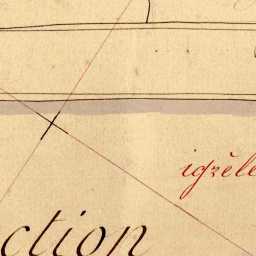 igzèle
ction